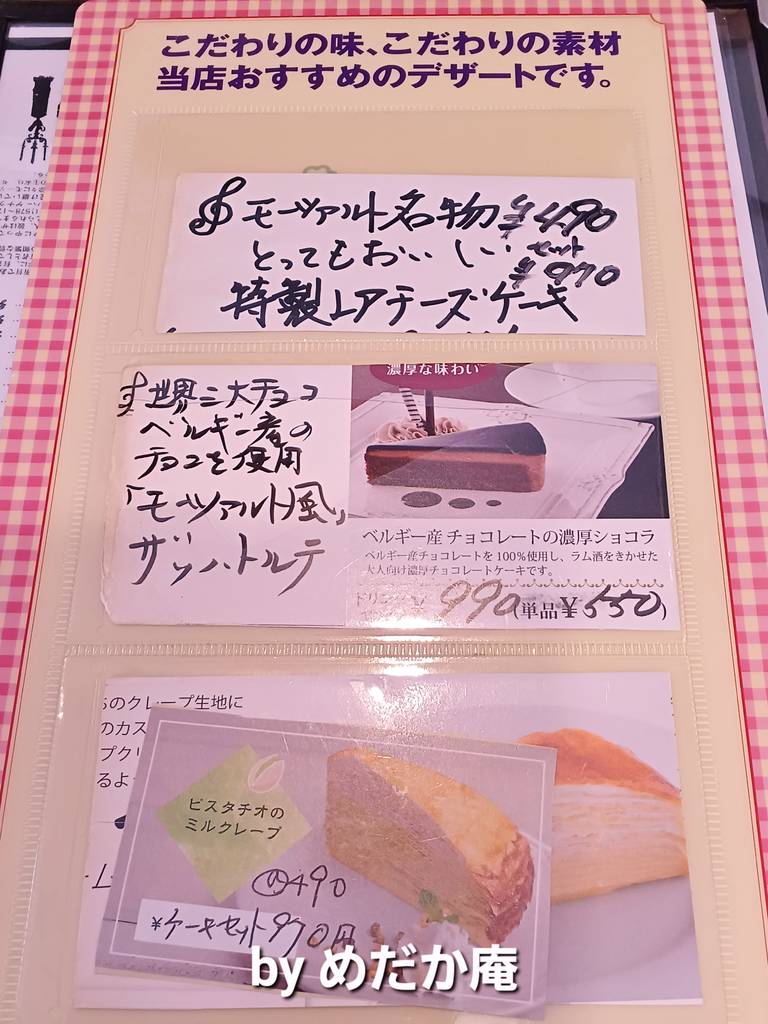 こだわりの味、こだわりの素材
当店おすすめのデザートです。
モーツァルト名物 ¥490
とってもおいしい セット ¥970
特製レアチーズケーキ
世界三大チョコ
ベルギー産の
チョコを使用
「モーツァルト風」
ザッハトルテ
濃厚な味わい
ベルギー産 チョコレートの濃厚ショコラ
ベルギー産チョコレートを100%使用し、ラム酒をきかせた
大人向け濃厚チョコレートケーキです。
990 (単品¥550)
のクレープ生地に
のカス
プクリ
るよ
ピスタチオの
ミルクレープ
490
¥ケーキセット970円
by めだか庵